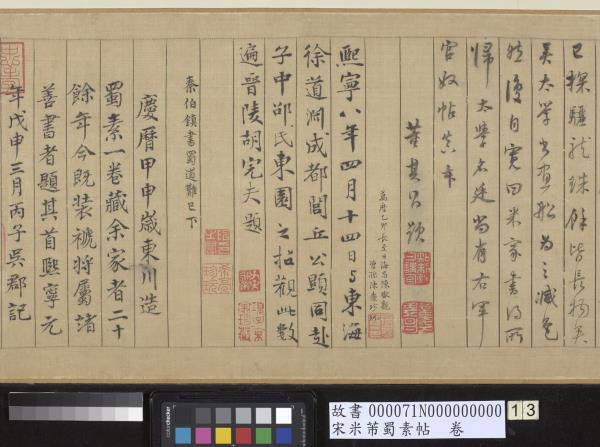 已探驪龍珠餘皆長物矣
吳太學書畫船為之減色
然復自寬曰米家書得所
歸太學名廷尚有右軍
官奴帖真本
董其昌題
萬曆乙卯長至日海寧陳瓛觀
曾孫陳
熙寧八年四月十四日與東海
徐道淵成都閭丘公顯同赴
子中邵氏東園之招觀此數
遍晉陵胡完夫題
秦伯鎮書蜀道難已下
慶曆甲申歲東川造
蜀素一卷藏余家者二十
餘年今既裝褫將屬諸
善書者題其首熙寧元
年戊申三月丙子吳郡記
故書 000071N000000000
宋米芾蜀素帖 卷
13